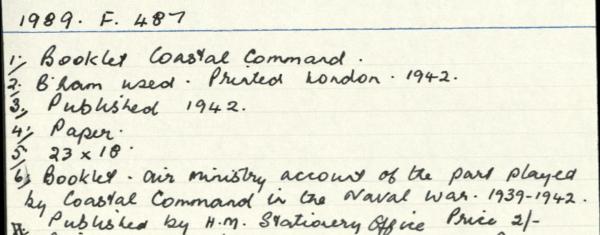 1989. F. 487
1, Booklet Coastal Command.
2. B'ham used. Printed London. 1942.
3, Published 1942.
4, Paper.
5, 23 x 18.
6, Booklet. Air Ministry account of the part played
by Coastal Command in the Naval War. 1939-1942.
Published by H.M. Stationery Office Price 2/-